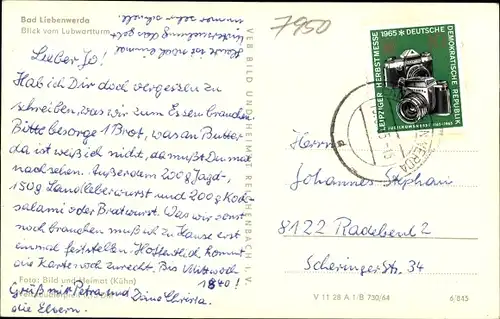 Bad Liebenwerda
Blick vom Lubwartturm
7950
Lieber Jo!
Hab ich Dir doch vergessen zu
schreiben, was wir zum Essen brauchen.
Bitte besorge 1 Brot, was an Butter
da ist weiß ich nicht, da mußt Du mal
nachsehen. Außerdem 200 g Jagd-,
150 g Landleberwurst und 200 g Kod-
salami oder Bratwurst. Was wir sonst
noch brauchen muß ich zu Hause erst
einmal feststellen. Hoffentlich kommt
die Karte noch zurecht. Bis Mittwoch
1840!
Gruß mit Petra und Deine Christa
die Eltern.
Foto: Bild und Heimat (Kühn)
VEB BILD UND HEIMAT REICHENBACH I. V.
LEIPZIGER HERBSTMESSE 1965
DEUTSCHE DEMOKRATISCHE REPUBLIK
JUBILÄUMSMESSE 1165-1965
Herrn
Johannes Stephan
8122 Radebeul 2
Scheringerstr. 34
V 11 28 A 1/B 730/64
6/845